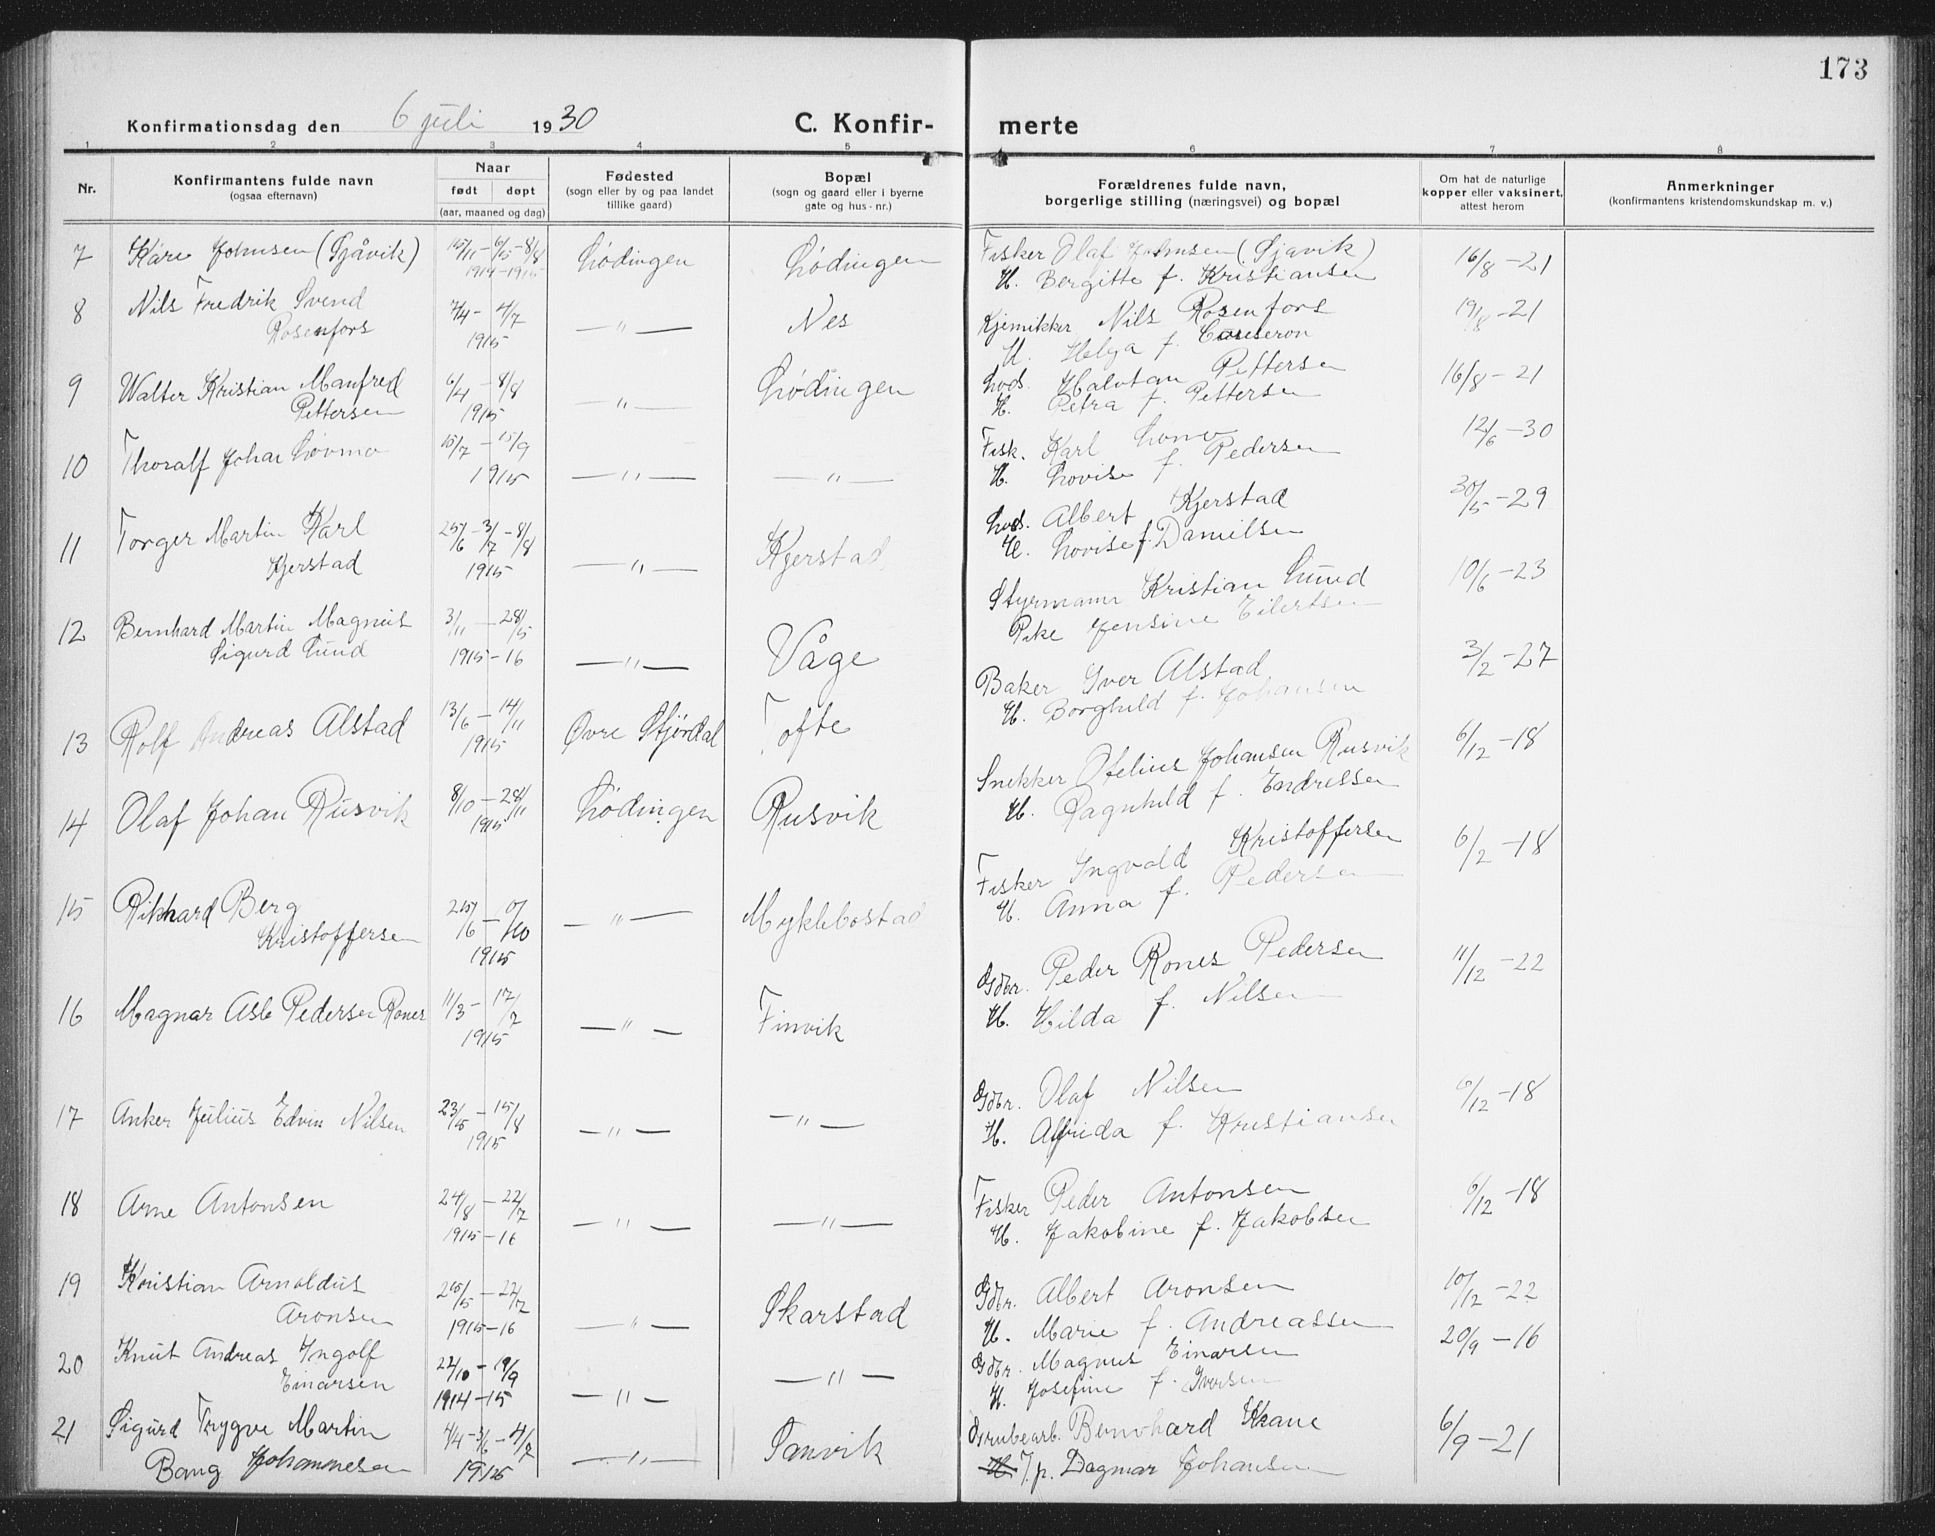 173
Konfirmationsdag den 6 juli 1930 C. Konfir- merte
1 2 3 4 5 6 7 8
Nr. Konfirmantens fulde navn (ogsaa efternavn) Naar født døpt (aar, maaned og dag) Fødested (sogn eller by og paa landet tillike gaard) Bopæl (sogn og gaard eller i byerne gate og hus-nr.) Forældrenes fulde navn, borgerlige stilling (næringsvei) og bopæl Om hat de naturlige kopper eller vaksinert, attest herom Anmerkninger (konfirmantens kristendomskundskap m. v.)
7 Kåre Johnsen (Sjåvik) 15/11 - 6/5 - 8/8 Lødingen Lødingen Fisker Olaf Johnsen (Sjavik) 16/8 - 21
1914 - 1915 H. Bergitte f. Kristiansen
8 Nils Fredrik Svend 7/4 - 4/7 — " — Nes Kjemikker Nils Rosenfors 19/8 - 21
Rosenfors 1915 H. Helga f.
9 Walter Kristian Manfred 6/4 - 8/8 — " — Lødingen Lods. Halvdan Pettersen 16/8 - 21
Pettersen 1915 H. Petra f. Pettersen
10 Thoralf Johan Løvmo 15/7 - 15/9 — " — — " — Fisk. Karl 12/6 - 30
1915 H. Lovise f. Pedersen
11 Torger Martin Karl 25/6 - 3/7 - 8/8 — " — Kjerstad Lods. Albert Kjerstad 30/5 - 29
Kjerstad 1915 H. Lovise f. Danielsen
12 Bernhard Martin Magnus 3/11 - 28/5 — " — Våge Styrmann Kristian Lund 10/6 - 23
Sigurd Lund 1915 - 16 Pike Jensine Eilertsen
13 Rolf Andreas Alstad 13/6 - 14/11 Øvre Stjørdal Tofte Baker Iver Alstad 3/2 - 27
1915 H. Borghild f. Johansen
14 Olaf Johan Rusvik 8/10 - 28/11 Lødingen Rusvik Snekker Otelius Johansen Rusvik 6/12 - 18
1915 H. Ragnhild f. Endresen
15 Rikhard Berg — " — Myklebostad Fisker Ingvald Kristoffersen 6/2 - 18
Kristoffersen 1915 H. Anna f. Pedersen
16 Magnar Asle Pedersen Rones 11/3 - 17/7 — " — Finvik Gdbr. Peder Rones Pedersen 11/12 - 22
1915 H. Hilda f. Nilsen
17 Anker Julius Edvin Nilsen 23/5 - 15/8 — " — — " — Gdbr. Olaf Nilsen 6/12 - 18
1915 H. Alfrida f. Kristiansen
18 Arne Antonsen 24/8 - 22/7 — " — — " — Fisker Peder Antonsen 6/12 - 18
1915 - 16 H. Jakobine f. Jakobsen
19 Kristian Arnoldus 25/5 - 22/7 — " — Skarstad Gdbr. Albert Aronsen 10/12 - 22
Aronsen 1915 - 16 H. Marie f. Andreassen
20 Knut Andreas Ingolf 22/10 - 19/9 — " — — " — Gdbr. Magnus Einarsen 20/9 - 16
Einarsen 1914 - 15 H. Josefine f. Iversen
21 Sigurd Trygve Martin 4/4 - 3/6 - 4/7 — " — Sanvik Grubearb. Bernhard Kkane 6/9 - 21
Bang Johannesen 1915 H. J. p. Dagmar Johansen